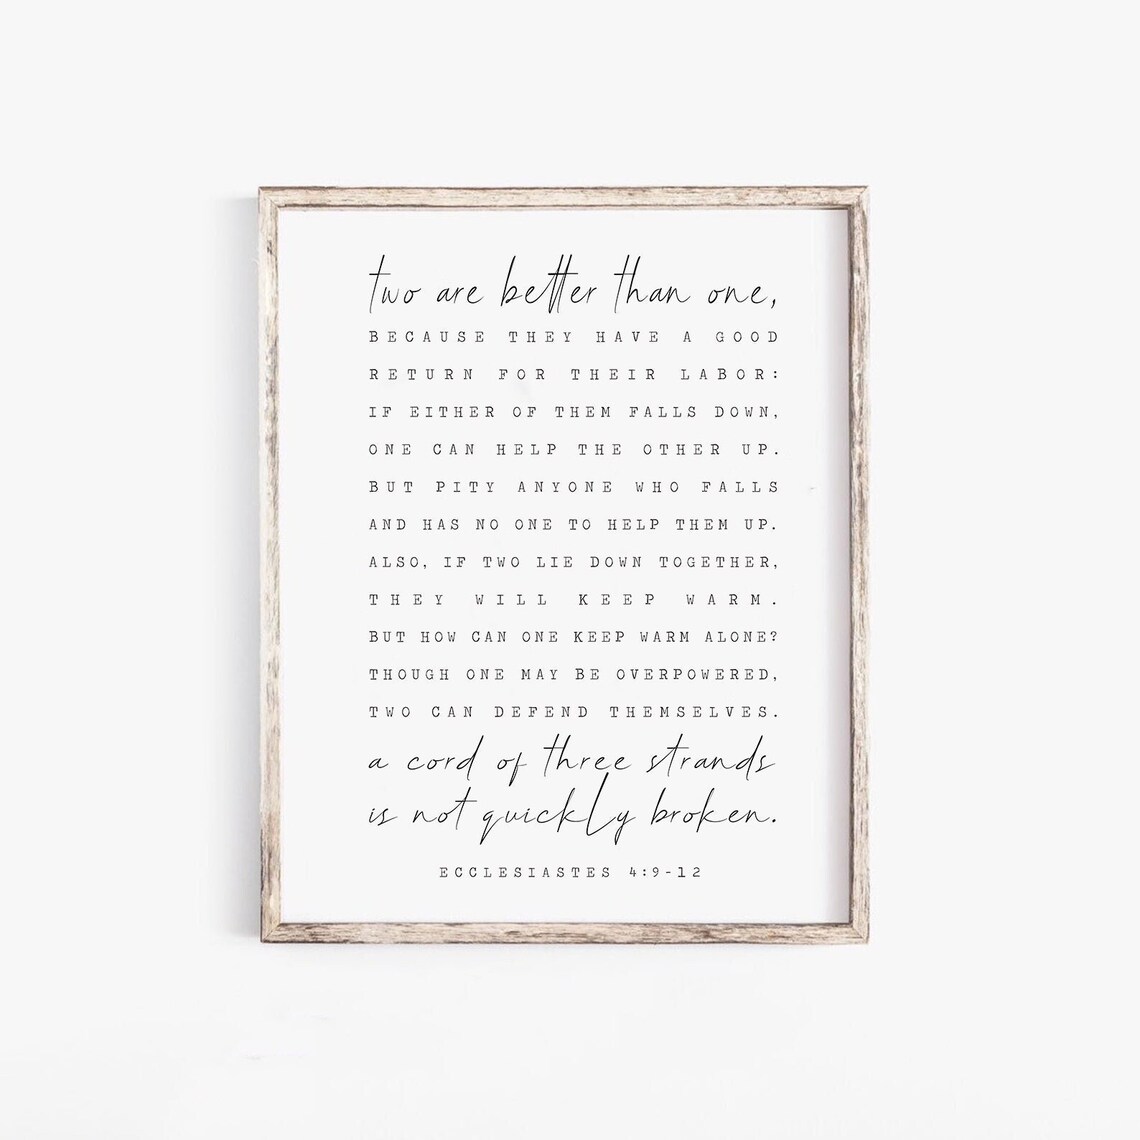 two are better than one,
BECAUSE THEY HAVE A GOOD
RETURN FOR THEIR LABOR:
IF EITHER OF THEM FALLS DOWN,
ONE CAN HELP THE OTHER UP.
BUT PITY ANYONE WHO FALLS
AND HAS NO ONE TO HELP THEM UP.
ALSO, IF TWO LIE DOWN TOGETHER,
THEY WILL KEEP WARM.
BUT HOW CAN ONE KEEP WARM ALONE?
THOUGH ONE MAY BE OVERPOWERED,
TWO CAN DEFEND THEMSELVES.
a cord of three strands
is not quickly broken.
ECCLESIASTES 4:9-12